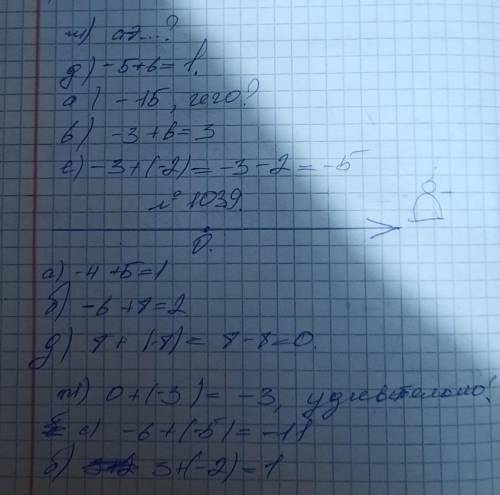 ж) аэ...?
д) -5+6= 1.
а) -15, чего?
в) -3+6=3
е) -3+(-2)= -3-2= -5
№ 1039.
0.
а) -4 +5=1
б) -6 +8=2
д) 8+ (-8)= 8-8=0.
ж) 0+(-3)= -3, удивительно!
е) -6+(-5)= -11
б) 3+(-2)=1